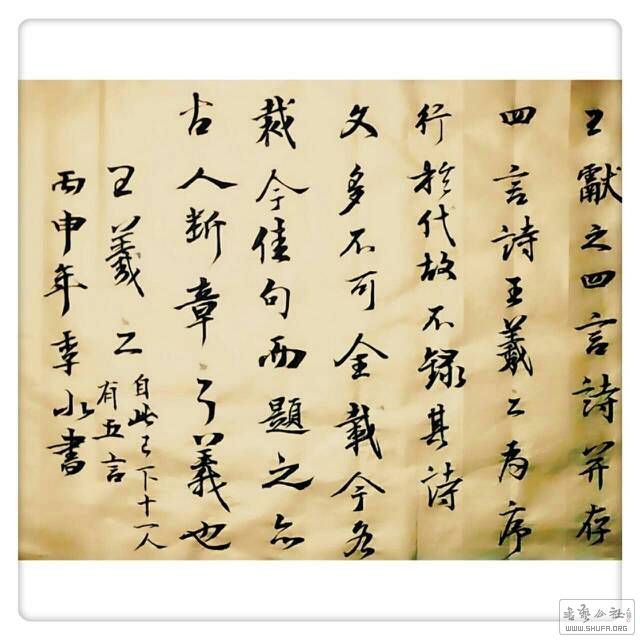 王獻之四言詩并存
四言詩王羲之為序
行於代故不錄其詩
文多不可全載今各
裁今佳句而題之亦
古人斷章之義也
王羲之
自此已下十一人
有五言
丙申年季水書
書藝公社
WWW.SHUFA.ORG